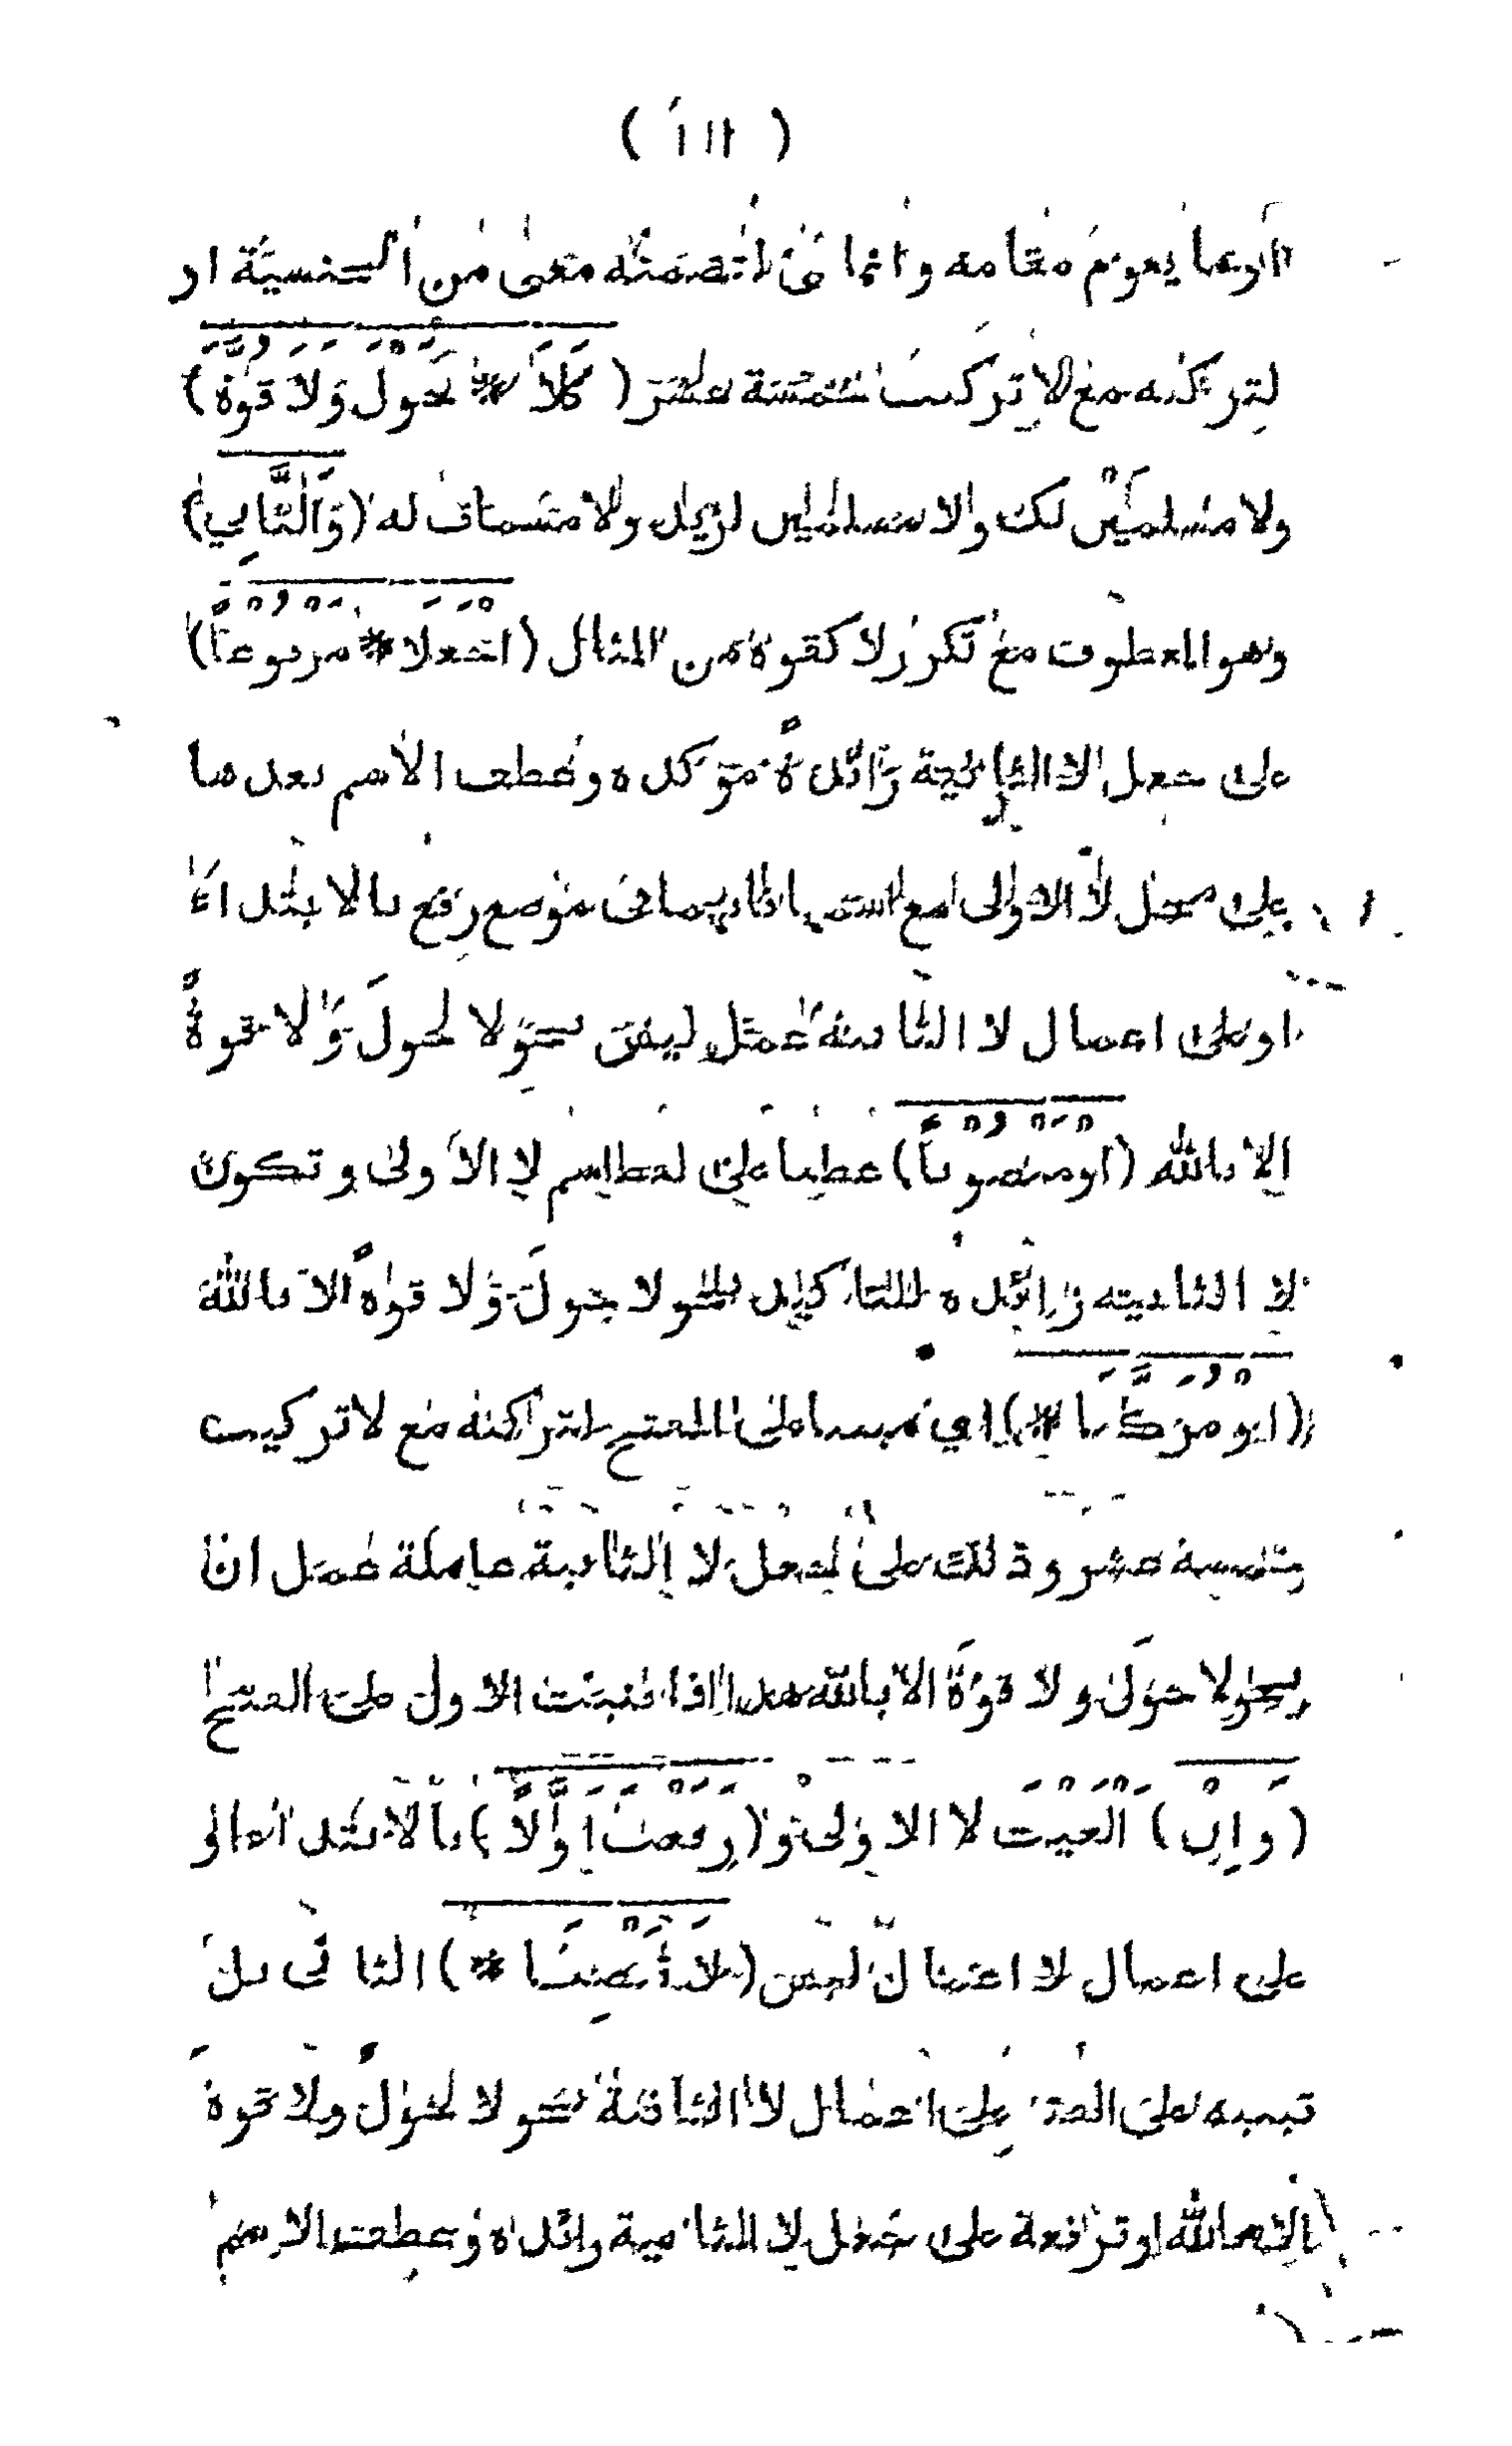 ( ١١١ )
او ما يقوم مقامه وانما بنى لتضمنه معنى من الجنسية او
لتركبه مع لا تركيب خمسة عشر (كَلاَ * حَوْلَ وَلاَ قُوَّةَ)
ولا مسلمَيْن لك ولا مسلمين لزيد ولا مسمات له (وَالثَّانِي)
وهو المعطوف مع تكرر لا كقوة من المثال (اجْعَلَا * مَرْفُوعاً)
على جعل لا الثانية زائدةً مؤكدة وعطف الاسم بعدها
على محل لا الاولى مع اسمها فانهما في موضع رفع بالابتداء
او على اعمال لا الثانية عمل ليس نحو لا حولَ ولا قوةٌ
الا بالله (اومَنْصُوباً) عطفا على لفظ اسم لا الاولى وتكون
لا الثانية زائدة للتاكيد نحو لا حولَ ولا قوةً الا بالله
(اوْ مُرَكَّبَا *) اي مبنيا على الفتح لتركبه مع لا تركيب
خمسة عشر وذلك على جعل لا الثانية عاملة عمل ان
نحو لا حولَ ولا قوةَ الا بالله هذا اذا بنيت الاول على الفتح
(وَاِنْ) الْغَيْتَ لا الاولى و (رَفَعْتَ اَوَّلاً) بالابتداء او
على اعمال لا اعمال ليس (لَا تَنْصِبَا *) الثاني بل
تبنيه على الفتح على اعمال لا الثانية نحو لا حولٌ ولا قوةَ
الا بالله او ترفعه على جعل لا الثانية زائدة وعطفت الاسم